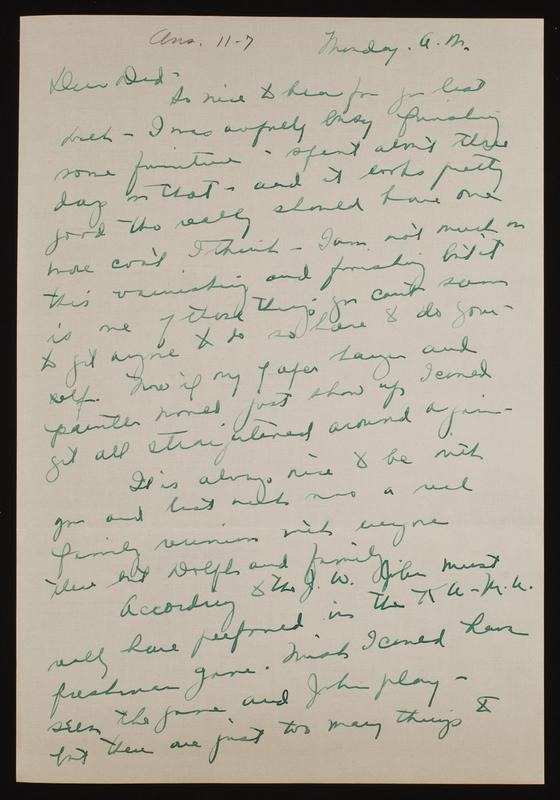 Ans. 11-7
Monday. A.M.
Dear Dad-
So nice to hear from you last
week - I was awfully busy finishing
some furniture - spent about three
days on that - and it looks pretty
good tho really should have one
more coat I think - I am not much on
this varnishing and finishing but it
is one of those things you can't seem
to get anyone to do so have to do your-
self. Now if my paper hanger and
painter would just show up I could
get all straightened around again -
It is always nice to be with
you and last week was a real
family reunion with everyone
there but Dolph and family.
According to the J.W. John must
really have performed in the K.U.-M.U.
freshman game. Wish I could have
seen the game and John play -
but there are just too many things to